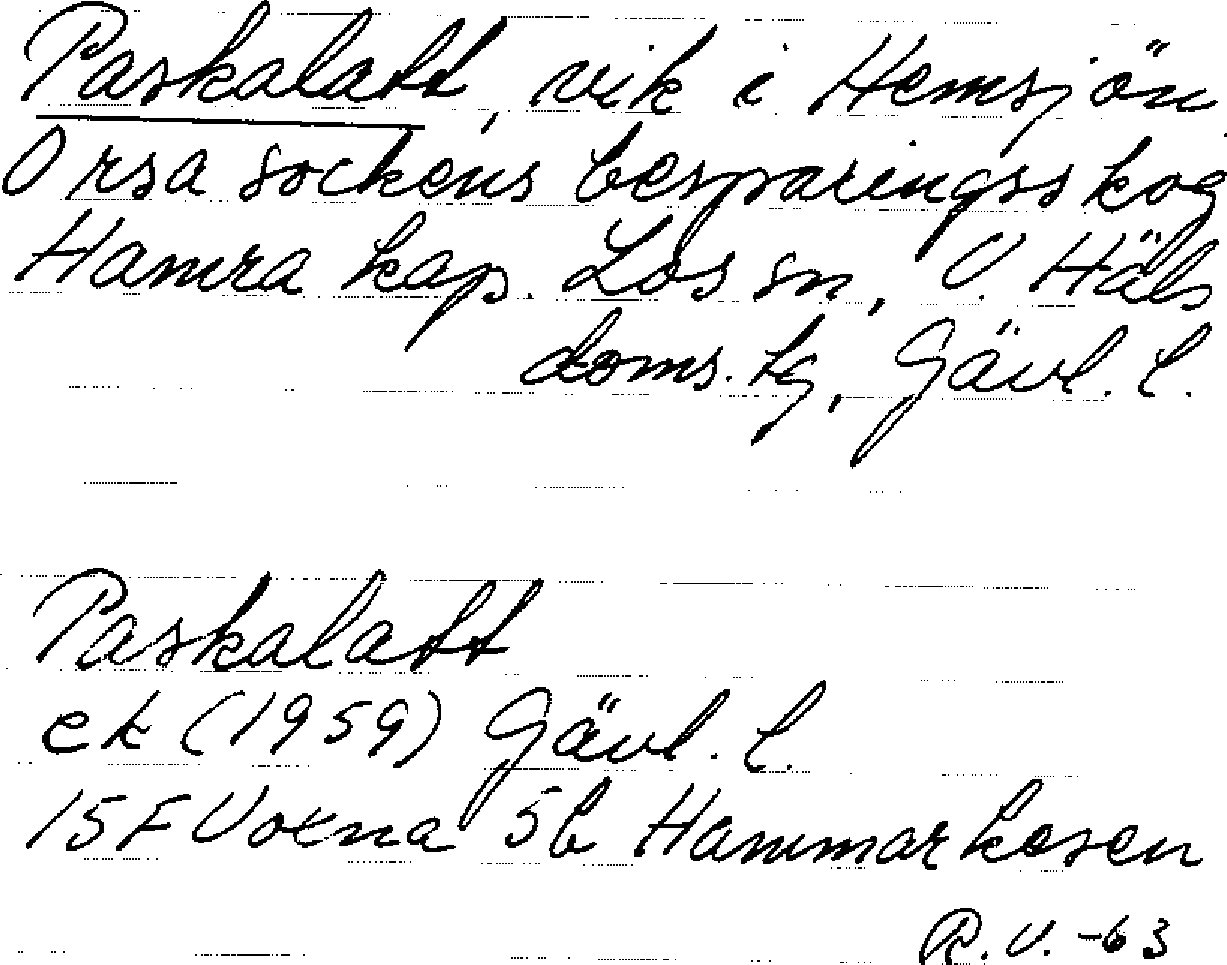 Paskalatt, vik i Hemsjön
Orsa sockens besparingsskog
Hamra kap. Los sn, V. Häls
doms. tg, Gävl. l.
Paskalatt
ek (1959) Gävl. l.
15F Voxna 5b Hammarkosen
R.V. -63